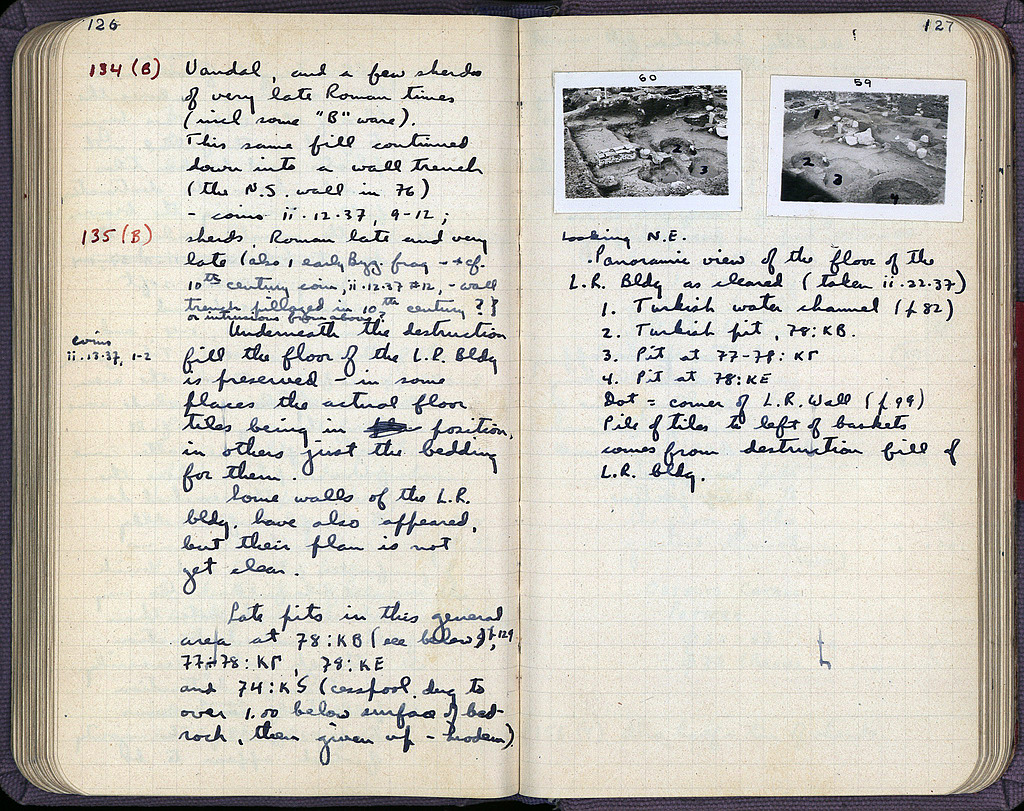 126
134 (B) Vandal, and a few sherds
of very late Roman times
(incl some "B" ware).
This same fill continued
down into a wall trench
(the N.S. wall in 76)
- coins ii.12.37, 9-12;
135 (B) sherds, Roman late and very
late (also 1 early Byz. frag - + cf.
10th century coin, ii.12.37 #12, - wall
trench pillaged in 10th century ?
or intrusions from above?
Underneath the destruction
coins
ii.13.37, 1-2
fill the floor of the L.R. Bldg
is preserved - in some
places the actual floor
tiles being in position,
in others just the bedding
for them.
Some walls of the L.R.
bldg. have also appeared,
but their plan is not
yet clear.
Late pits in this general
area at 78:KB (see below), p. 129
77-78:KΓ, 78:KE
and 74:KS (cesspool, dug to
over 1.00 below surface of bed-
rock, then given up - modern)
127
60
2
3
59
1
2
3
4
Looking N.E.
Panoramic view of the floor of the
L.R. Bldg as cleared (taken ii.22.37)
1. Turkish water channel (p 82)
2. Turkish pit, 78:KB.
3. Pit at 77-78:KΓ
4. Pit at 78:KE
Dot = corner of L.R. Wall (p. 99)
Pile of tiles to left of baskets
comes from destruction fill of
L.R. bldg.